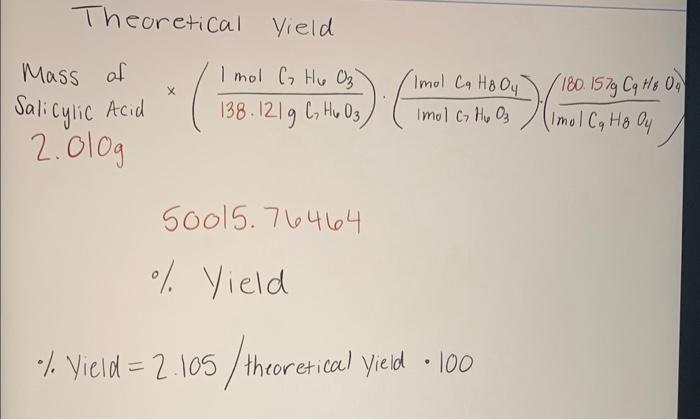 Theoretical Yield
Mass of Salicylic Acid × (1 mol C7 H6 O3 / 138.121g C7 H6 O3) · (1mol C9 H8 O4 / 1mol C7 H6 O3) · (180.157g C9 H8 O4 / 1mol C9 H8 O4)
2.010g
50015.76464
% Yield
% Yield = 2.105 / theoretical Yield • 100